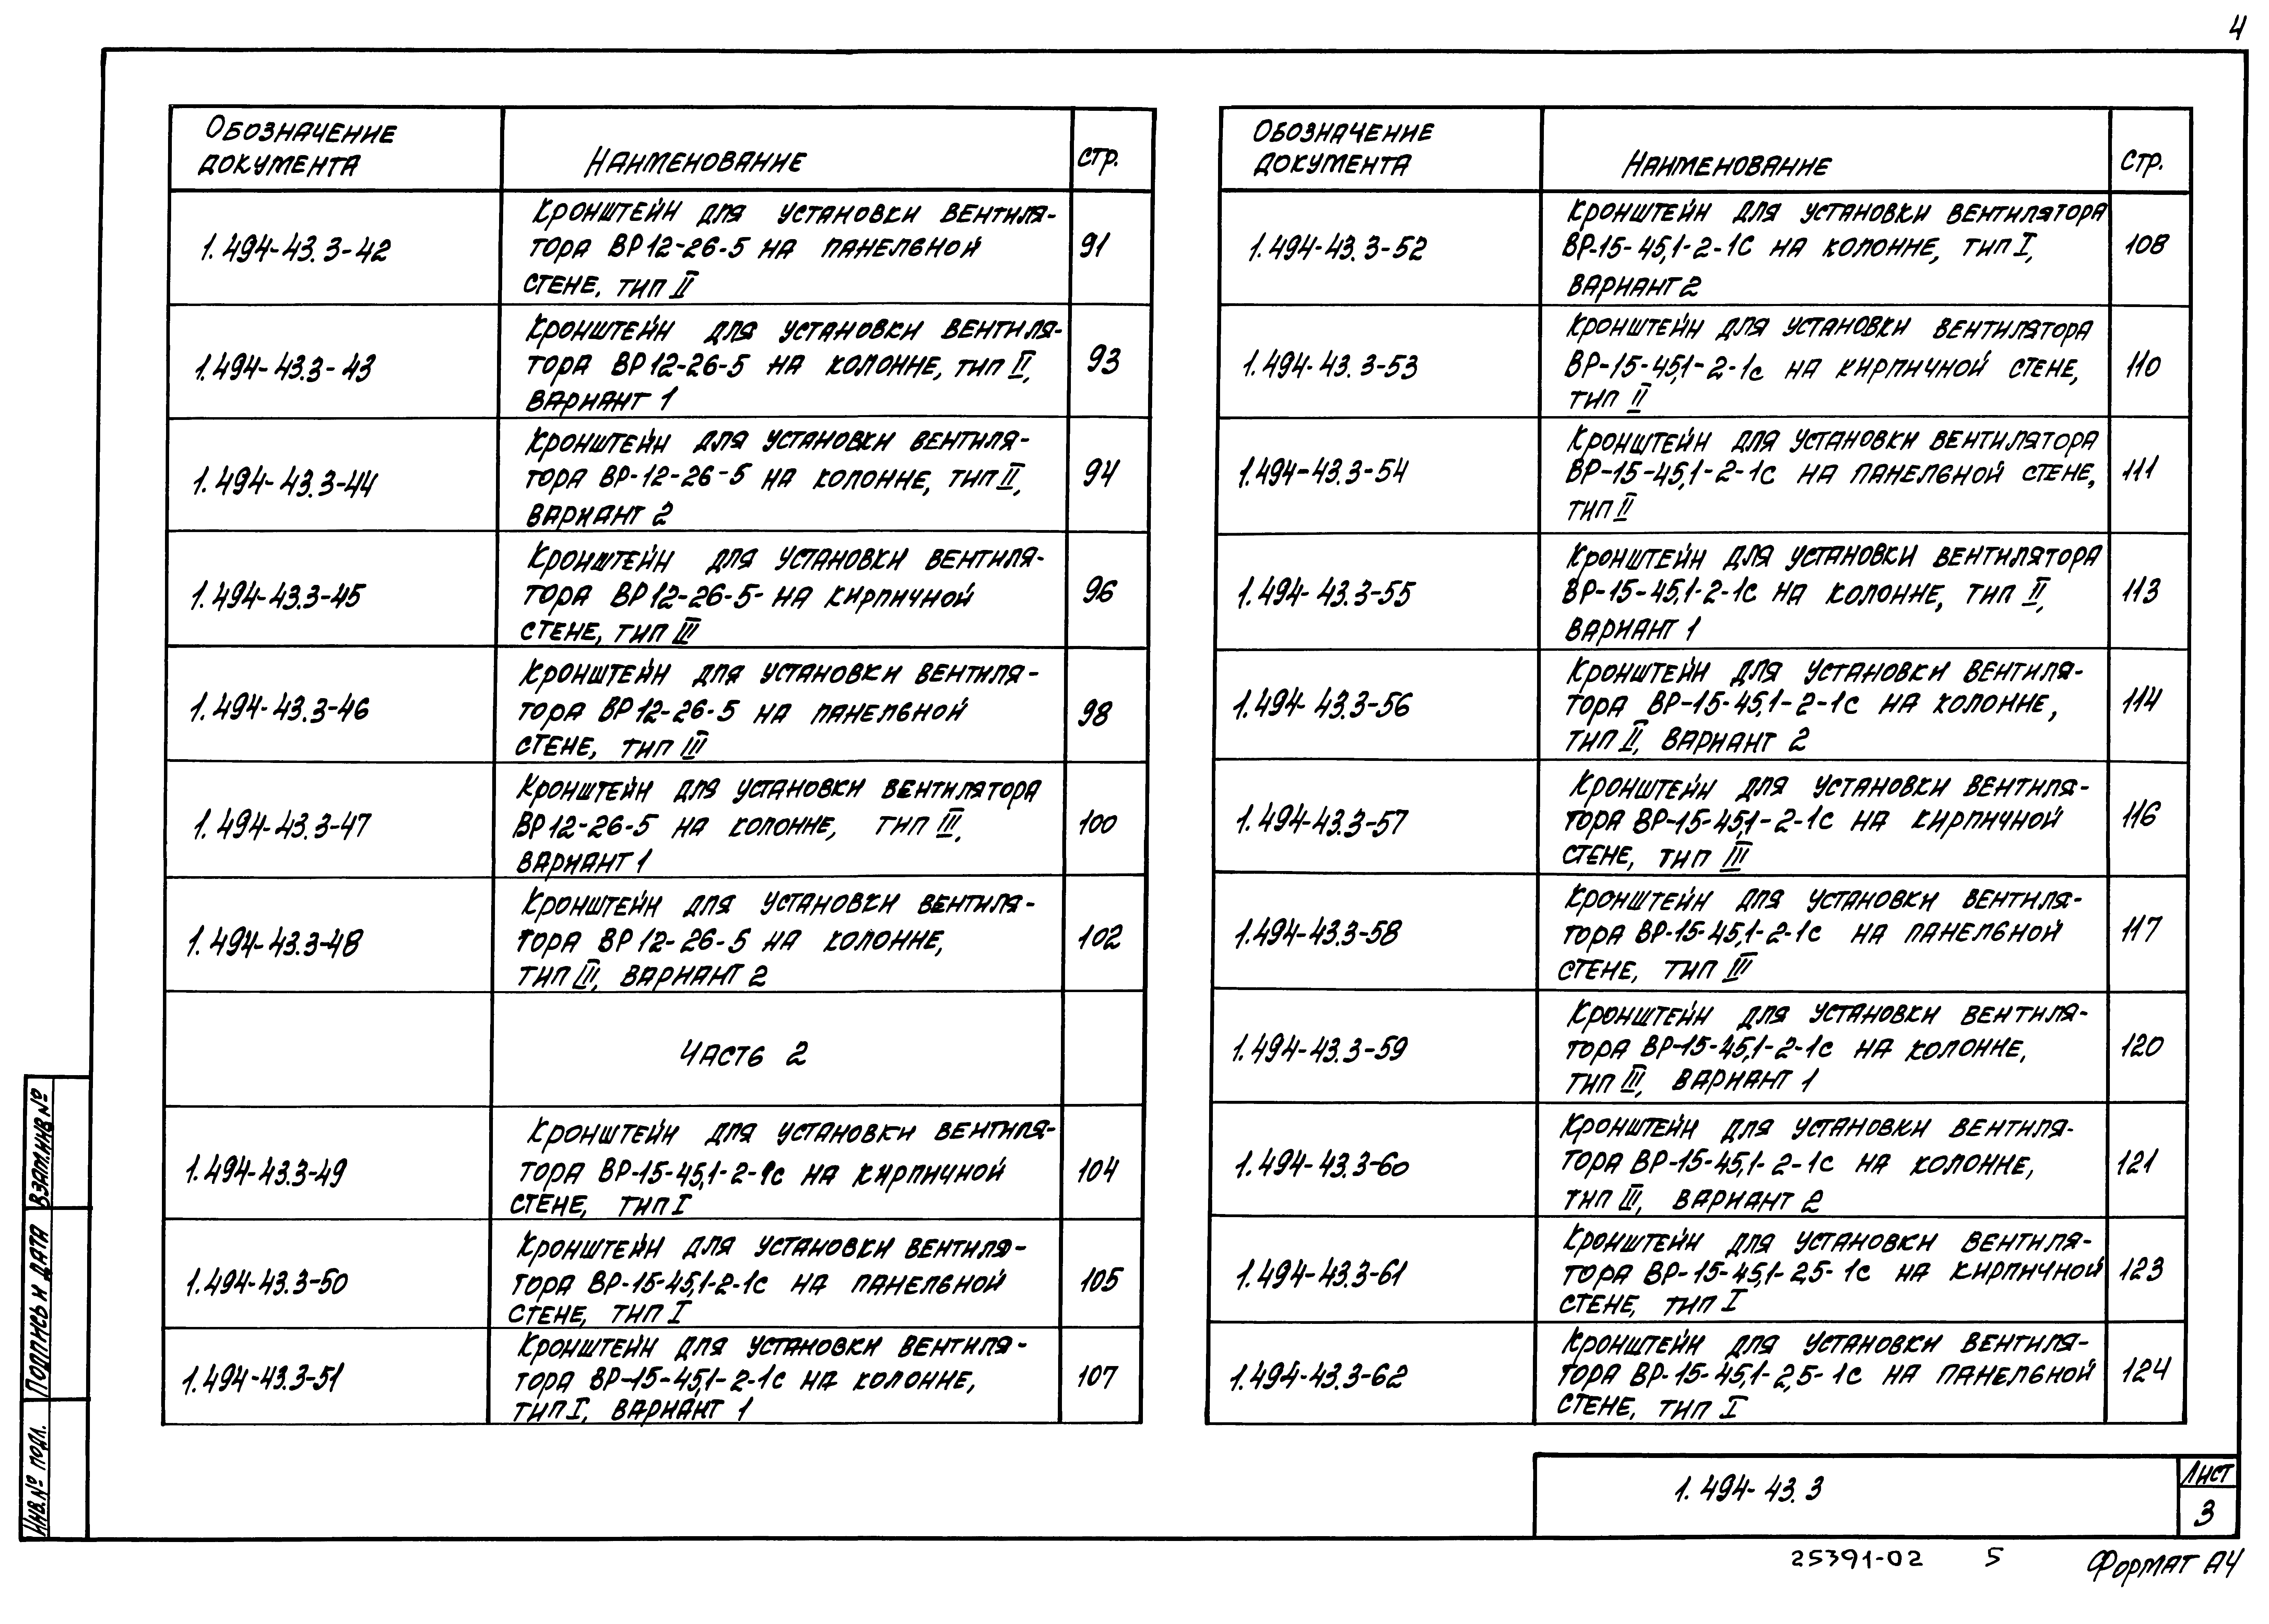 4
Обозначение
документа
Наименование
стр.
1.494-43.3-42
Кронштейн для установки вентиля-
тора ВР 12-26-5 на панельной
стене, тип II
91
1.494-43.3-43
Кронштейн для установки вентиля-
тора ВР 12-26-5 на колонне, тип II,
вариант 1
93
1.494-43.3-44
Кронштейн для установки вентиля-
тора ВР-12-26-5 на колонне, тип II,
вариант 2
94
1.494-43.3-45
Кронштейн для установки вентиля-
тора ВР 12-26-5- на кирпичной
стене, тип III
96
1.494-43.3-46
Кронштейн для установки вентиля-
тора ВР 12-26-5 на панельной
стене, тип III
98
1.494-43.3-47
Кронштейн для установки вентилятора
ВР 12-26-5 на колонне, тип III,
вариант 1
100
1.494-43.3-48
Кронштейн для установки вентиля-
тора ВР 12-26-5 на колонне,
тип III, вариант 2
102
Часть 2
1.494-43.3-49
Кронштейн для установки вентиля-
тора ВР-15-45,1-2-1с на кирпичной
стене, тип I
104
1.494-43.3-50
Кронштейн для установки вентиля-
тора ВР-15-45,1-2-1с на панельной
стене, тип I
105
1.494-43.3-51
Кронштейн для установки вентиля-
тора ВР-15-45,1-2-1с на колонне,
тип I, вариант 1
107
Обозначение
документа
Наименование
Стр.
1.494-43.3-52
Кронштейн для установки вентилятора
ВР-15-45,1-2-1с на колонне, тип I,
вариант 2
108
1.494-43.3-53
Кронштейн для установки вентилятора
ВР-15-45,1-2-1с на кирпичной стене,
тип II
110
1.494-43.3-54
Кронштейн для установки вентилятора
ВР-15-45,1-2-1с на панельной стене,
тип II
111
1.494-43.3-55
Кронштейн для установки вентилятора
ВР-15-45,1-2-1с на колонне, тип II,
вариант 1
113
1.494-43.3-56
Кронштейн для установки вентиля-
тора ВР-15-45,1-2-1с на колонне,
тип II, вариант 2
114
1.494-43.3-57
Кронштейн для установки вентиля-
тора ВР-15-45,1-2-1с на кирпичной
стене, тип III
116
1.494-43.3-58
Кронштейн для установки вентиля-
тора ВР-15-45,1-2-1с на панельной
стене, тип III
117
1.494-43.3-59
Кронштейн для установки вентиля-
тора ВР-15-45,1-2-1с на колонне,
тип III, вариант 1
120
1.494-43.3-60
Кронштейн для установки вентиля-
тора ВР-15-45,1-2-1с на колонне,
тип III, вариант 2
121
1.494-43.3-61
Кронштейн для установки вентиля-
тора ВР-15-45,1-2,5-1с на кирпичной
стене, тип I
123
1.494-43.3-62
Кронштейн для установки вентиля-
тора ВР-15-45,1-2,5-1с на панельной
стене, тип I
124
Взам.инв №
Подпись и дата
Инв.№ подл.
1.494-43.3
Лист
3
25391-02 5
Формат А4